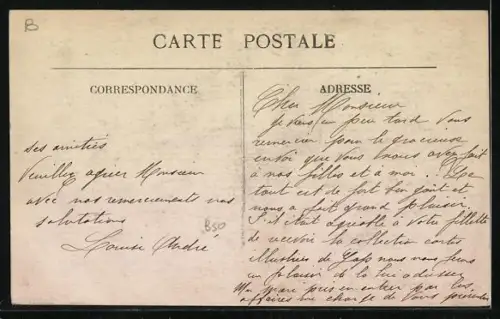 B
CARTE POSTALE
CORRESPONDANCE
ADRESSE
Cher Monsieur
je viens un peu tard vous
remercier pour le gracieux
envoi que vous nous avez fait
à nos filles et à moi. Le
tout est de fort bon goût et
nous a fait grand plaisir.
S'il était agréable à votre fillette
de recevoir la collection cartes
illustrées de Gap nous nous ferons
un plaisir de la lui adresser
Mon mari pris en entier par les
affaires me charge de vous présenter
ses amitiés
Veuillez agréer Monsieur
avec nos remerciements nos
salutations
Louise André
B50